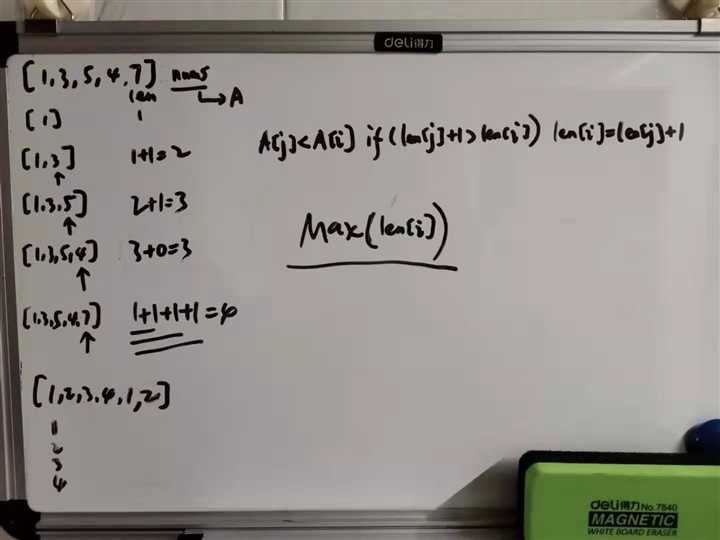 deli得力
[1,3,5,4,7] nums
len → A
[1] 1
[1,3] 1+1=2
[1,3,5] 2+1=3
[1,3,5,4] 3+0=3
[1,3,5,4,7] 1+1+1+1=4
A[j]<A[i] if(len[j]+1>len[i]) len[i]=len[j]+1
Max(len[i])
[1,2,3,4,1,2]
1
2
3
4
deli得力 No.7840
MAGNETIC
WHITE BOARD ERASER